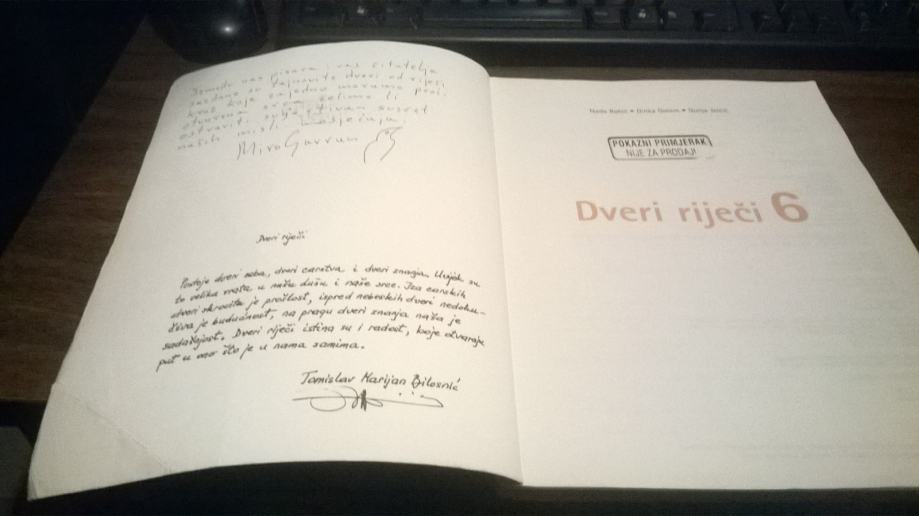 Između nas pisara i vas čitatelja
sazdane su tajnovite dveri od riječi
kroz koje zajedno moramo proći
otvorena srca želimo li
ostvariti susret
naših misli i osjećaja.
Miro Gavran
Dveri riječi
Postoje dveri neba, dveri carstva i dveri znanja. Uvijek su
to velika vrata u našu dušu i naše srce. Iza carskih
dveri skrovita je prošlost, ispred nebeskih dveri nedoku-
čiva je budućnost, na pragu dveri znanja naša je
sadašnjost. Dveri riječi istina su i radost, koje otvaraju
put u ono što je u nama samima.
Tomislav Marijan Bilosnić
POKAZNI PRIMJERAK
NIJE ZA PRODAJU
Dveri riječi 6